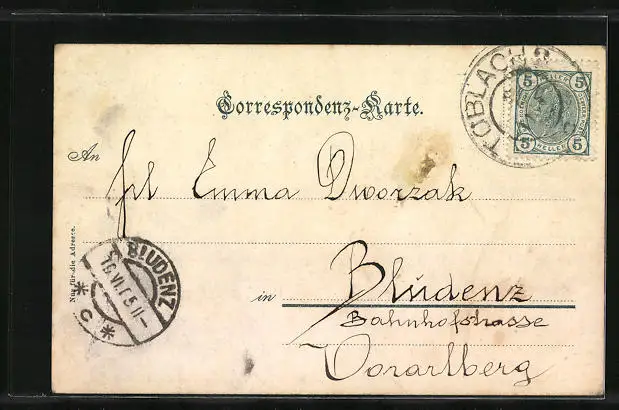 TOBLACH 2
5 5
5 HELLER 5
Correspondenz-Karte.
An
frl Emma Dworzak
Nur für die Adresse.
BLUDENZ
16.VI.05 11-
* C *
in Blüdenz
Bahnhofstrasse
Vorarlberg